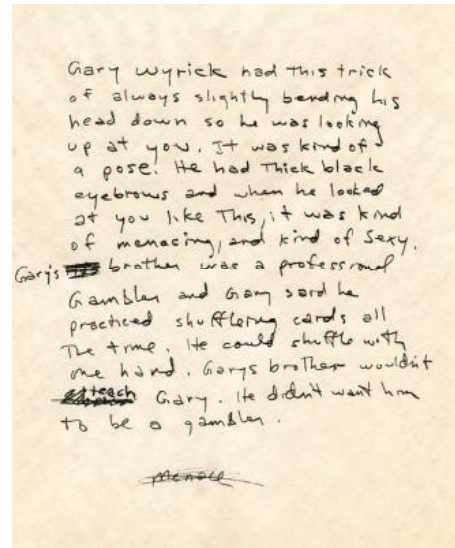 Gary Wyrick had this trick
of always slightly bending his
head down so he was looking
up at you. It was kind of
a pose. He had Thick black
eyebrows and when he looked
at you like This, it was kind
of menacing, and kind of Sexy.
Gary's brother was a professional
Gambler and Gary said he
practiced shuffleing cards all
The time. He could shuffle with
one hand. Garys brother wouldn't
teach Gary. He didn't want him
to be a gambler.
menace